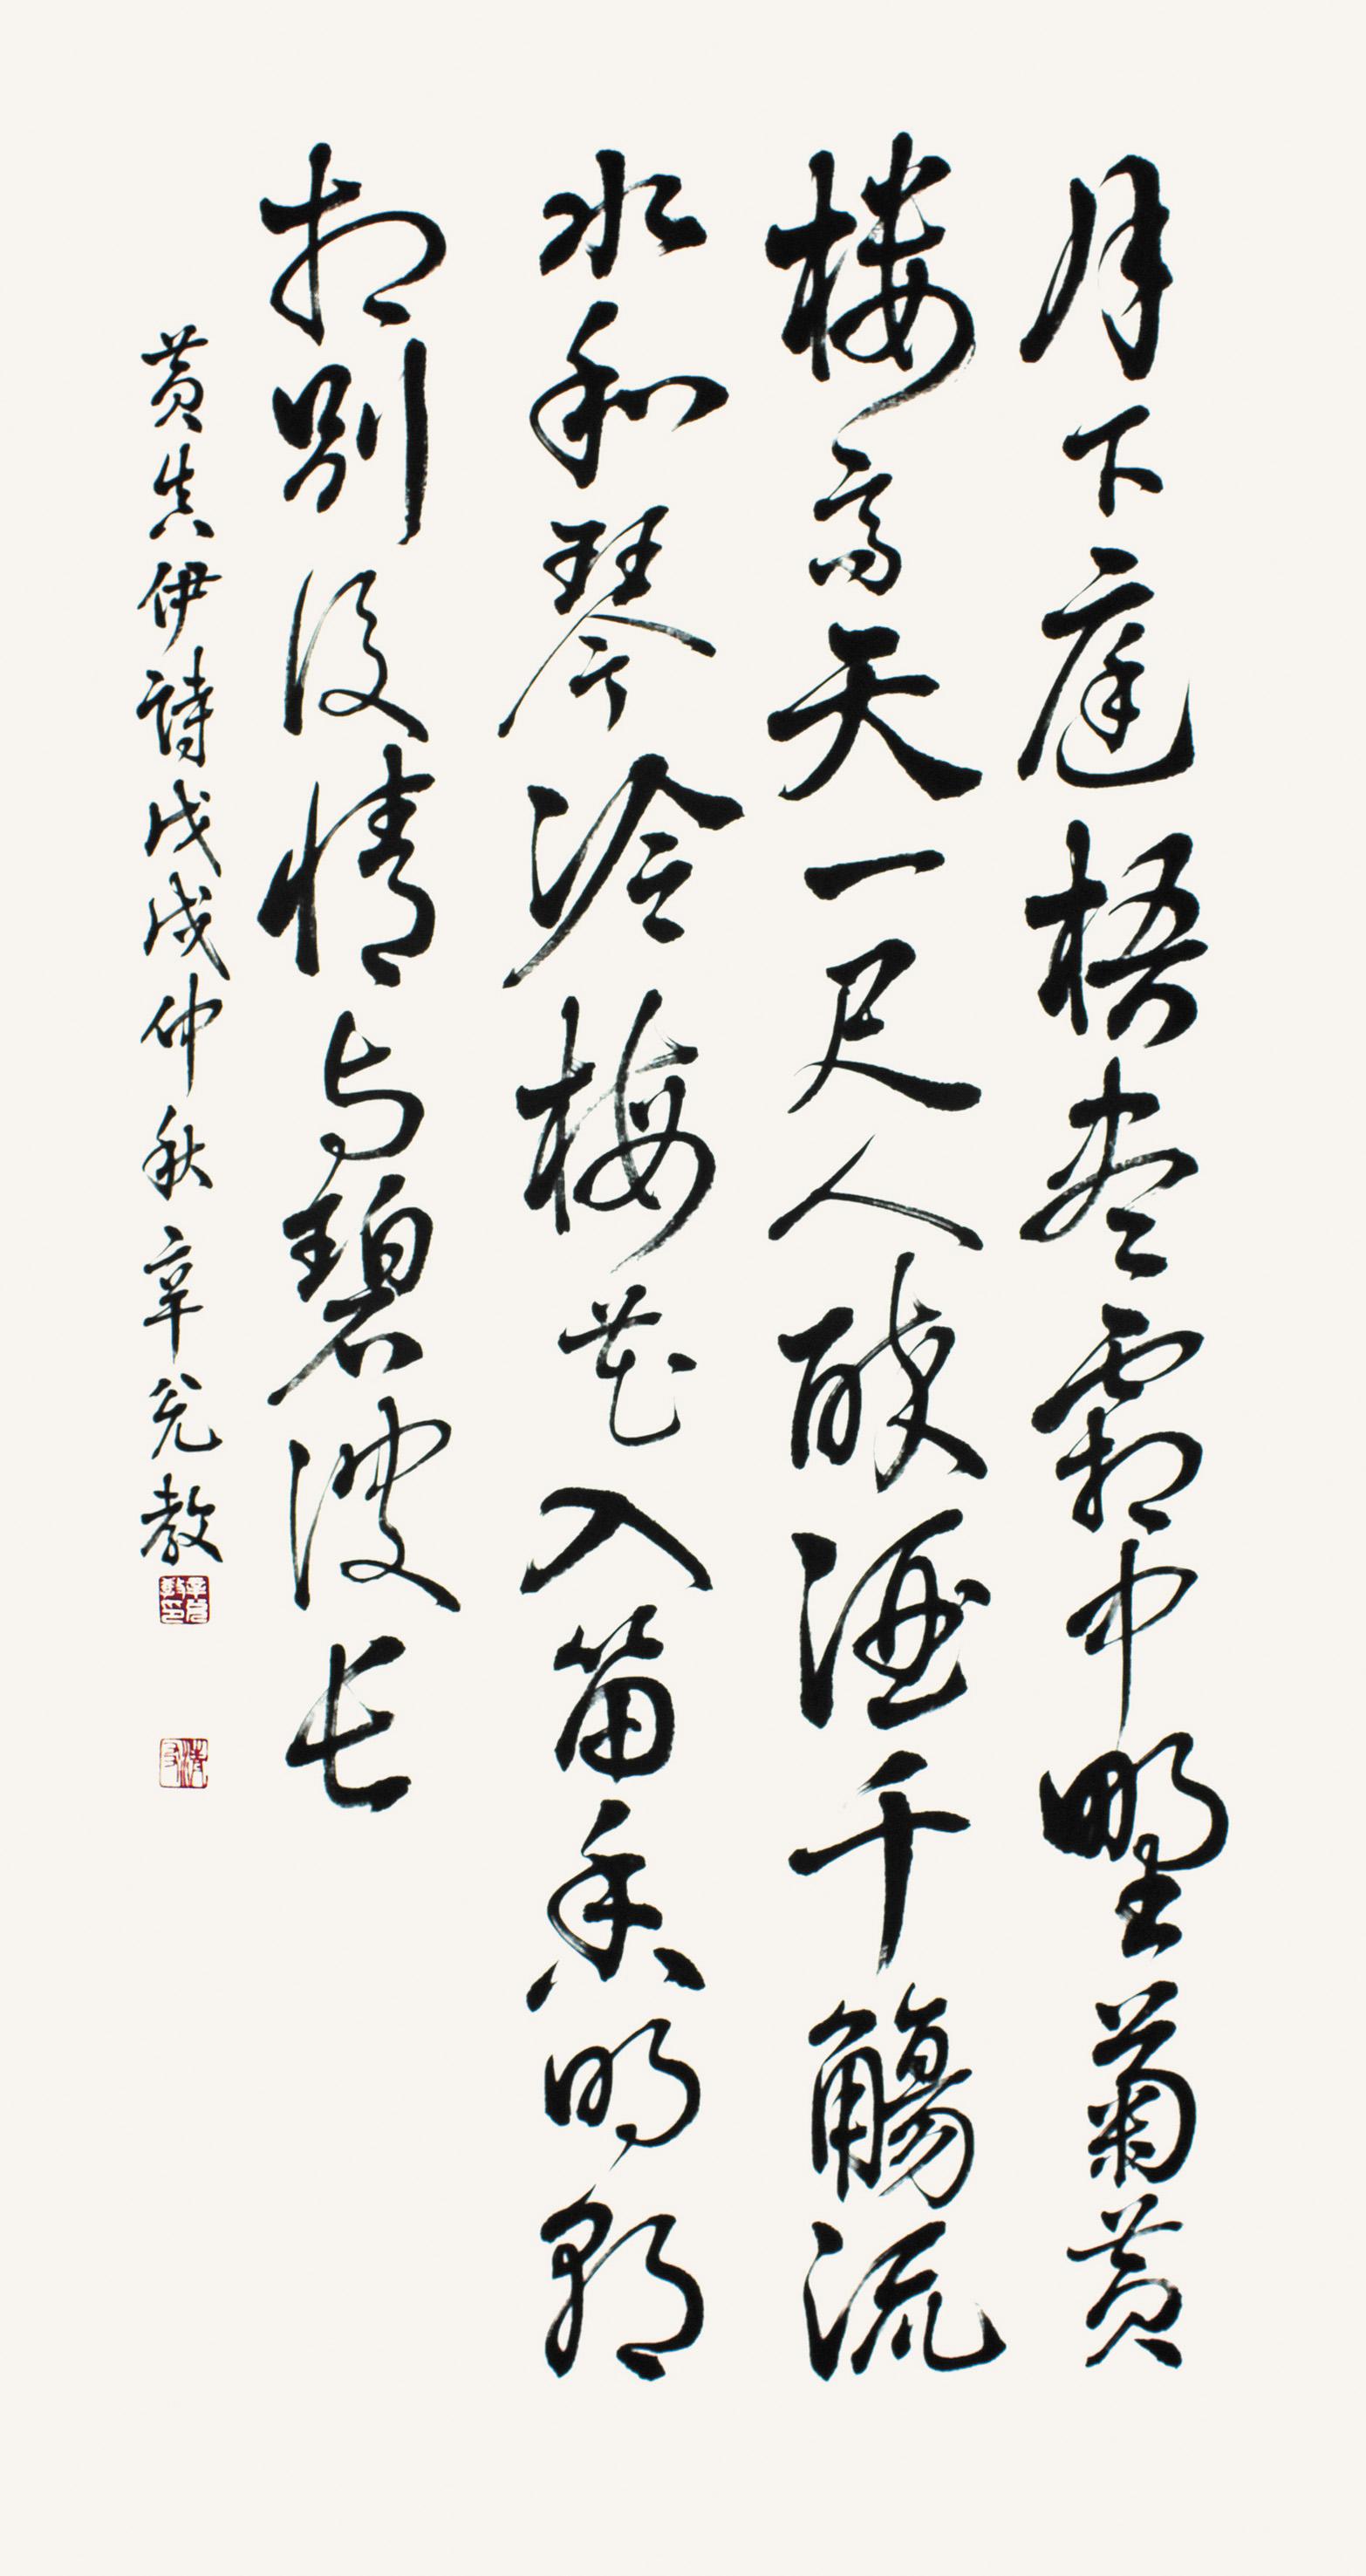 月下庭梧盡霜中野菊黃
樓高天一尺人醉酒千觴流
水和琴冷梅花入笛香明朝
相別後情与碧波長
黃真伊詩戊戌仲秋辛兌教